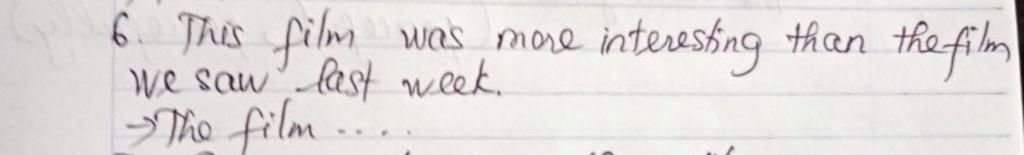 6. This film was more interesting than the film
we saw last week.
→ The film .....